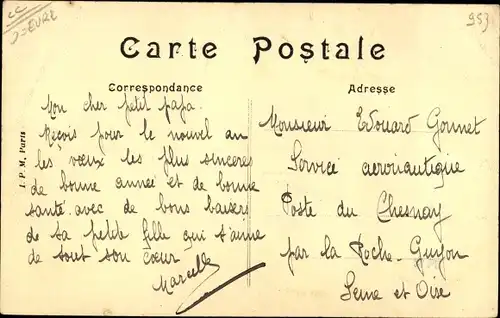 CC
J=EURE
953
Carte Postale
Correspondance
Mon cher petit papa.
Reçois pour le nouvel an
les vœux les plus sincères
de bonne année et de bonne
santé avec de bons baisers
de ta petite fille qui t'aime
de tout son cœur
Marcelle
I. P. M. Paris
Adresse
Monsieur Edouard Gonnet
Service aéronautique
Poste du Chesnay
par la Roche-Guyon
Seine et Oise